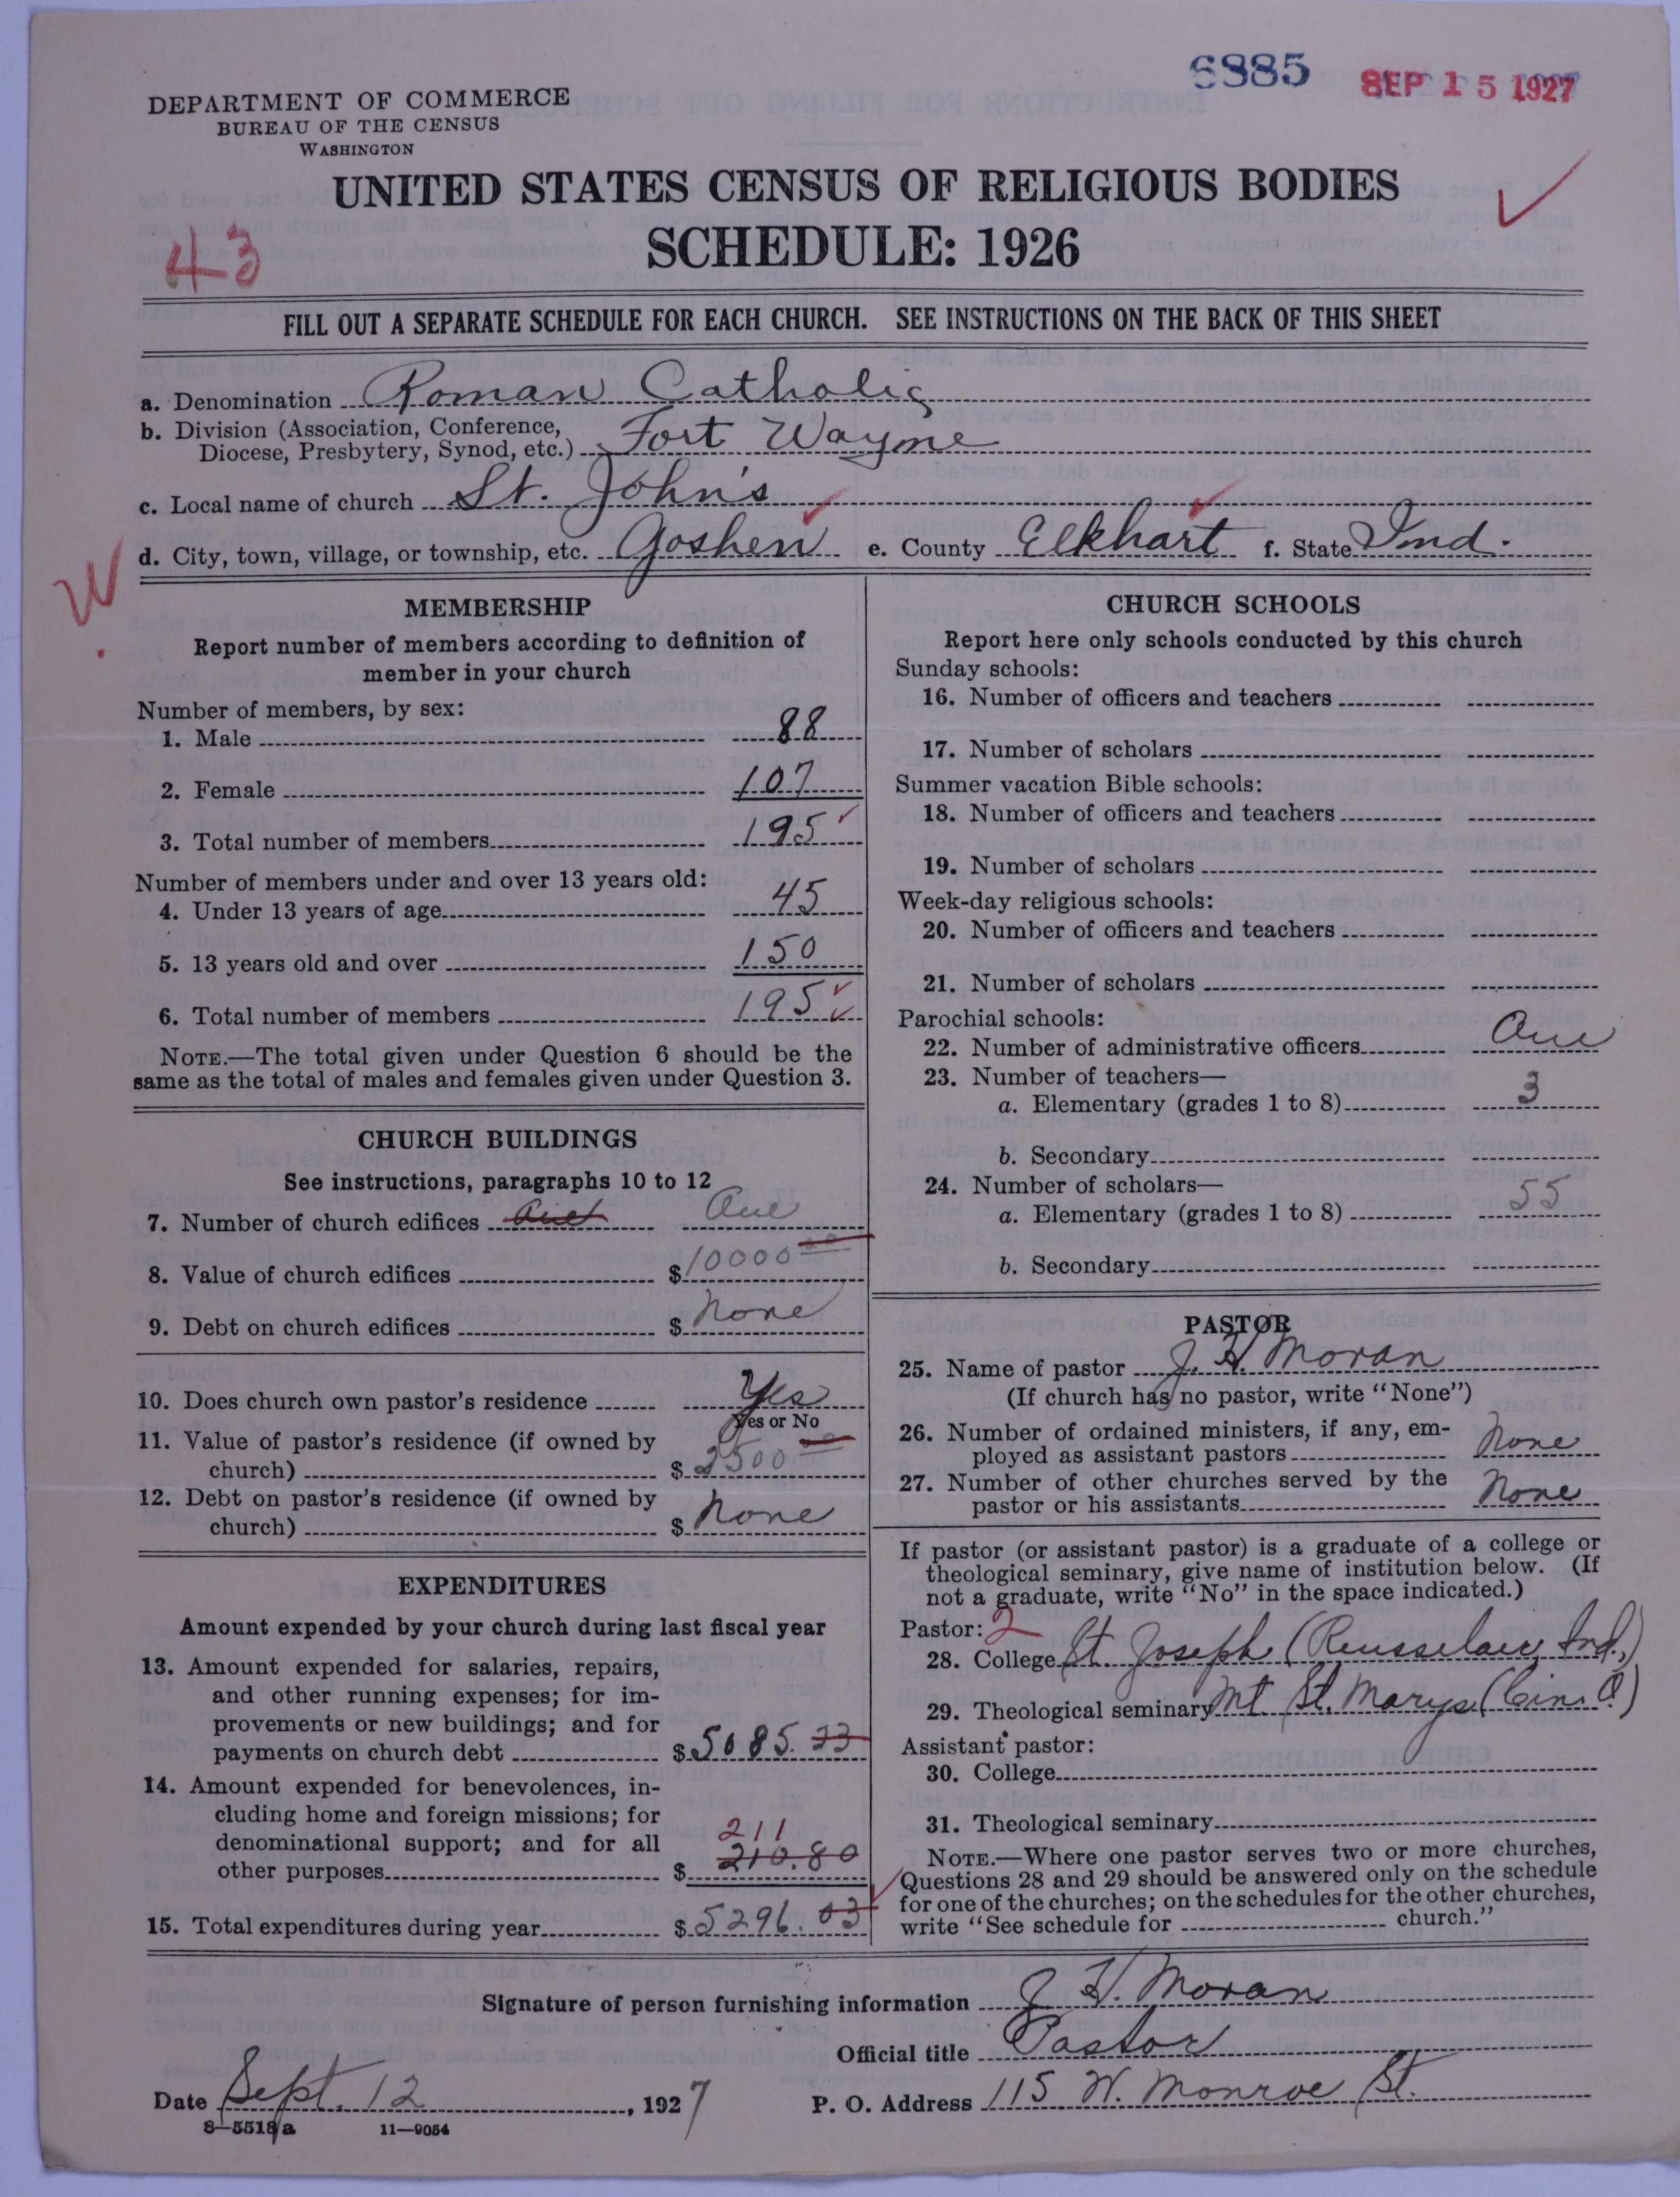 6885 SEP 15 1927
DEPARTMENT OF COMMERCE
BUREAU OF THE CENSUS
WASHINGTON
UNITED STATES CENSUS OF RELIGIOUS BODIES
SCHEDULE: 1926
43
FILL OUT A SEPARATE SCHEDULE FOR EACH CHURCH. SEE INSTRUCTIONS ON THE BACK OF THIS SHEET
a. Denomination Roman Catholic
b. Division (Association, Conference,
Diocese, Presbytery, Synod, etc.) Fort Wayne
c. Local name of church St. John's
d. City, town, village, or township, etc. Goshen e. County Elkhart f. State Ind.
W
MEMBERSHIP
Report number of members according to definition of
member in your church
Number of members, by sex:
1. Male 88
2. Female 107
3. Total number of members 195
Number of members under and over 13 years old:
4. Under 13 years of age 45
5. 13 years old and over 150
6. Total number of members 195
NOTE.—The total given under Question 6 should be the
same as the total of males and females given under Question 3.
CHURCH BUILDINGS
See instructions, paragraphs 10 to 12
7. Number of church edifices One
8. Value of church edifices $10000 00
9. Debt on church edifices $ None
10. Does church own pastor's residence Yes
Yes or No
11. Value of pastor's residence (if owned by
church) $2500 00
12. Debt on pastor's residence (if owned by
church) $ None
EXPENDITURES
Amount expended by your church during last fiscal year
13. Amount expended for salaries, repairs,
and other running expenses; for im-
provements or new buildings; and for
payments on church debt $5085.23
14. Amount expended for benevolences, in-
cluding home and foreign missions; for
denominational support; and for all 211
other purposes $ 210.80
15. Total expenditures during year $5296.03
CHURCH SCHOOLS
Report here only schools conducted by this church
Sunday schools:
16. Number of officers and teachers
17. Number of scholars
Summer vacation Bible schools:
18. Number of officers and teachers
19. Number of scholars
Week-day religious schools:
20. Number of officers and teachers
21. Number of scholars
Parochial schools:
22. Number of administrative officers One
23. Number of teachers—
a. Elementary (grades 1 to 8) 3
b. Secondary
24. Number of scholars—
a. Elementary (grades 1 to 8) 55
b. Secondary
PASTOR
25. Name of pastor J. H. Moran
(If church has no pastor, write "None")
26. Number of ordained ministers, if any, em-
ployed as assistant pastors None
27. Number of other churches served by the
pastor or his assistants None
If pastor (or assistant pastor) is a graduate of a college or
theological seminary, give name of institution below. (If
not a graduate, write "No" in the space indicated.)
Pastor: 2
28. College St. Joseph (Rensselaer, Ind.)
29. Theological seminary Mt St. Marys (Cin. O.)
Assistant pastor:
30. College
31. Theological seminary
NOTE.—Where one pastor serves two or more churches,
Questions 28 and 29 should be answered only on the schedule
for one of the churches; on the schedules for the other churches,
write "See schedule for church."
Signature of person furnishing information J. H. Moran
Official title Pastor
Date Sept. 12, 1927 P. O. Address 115 W. Monroe St.
8-5518a 11-9054